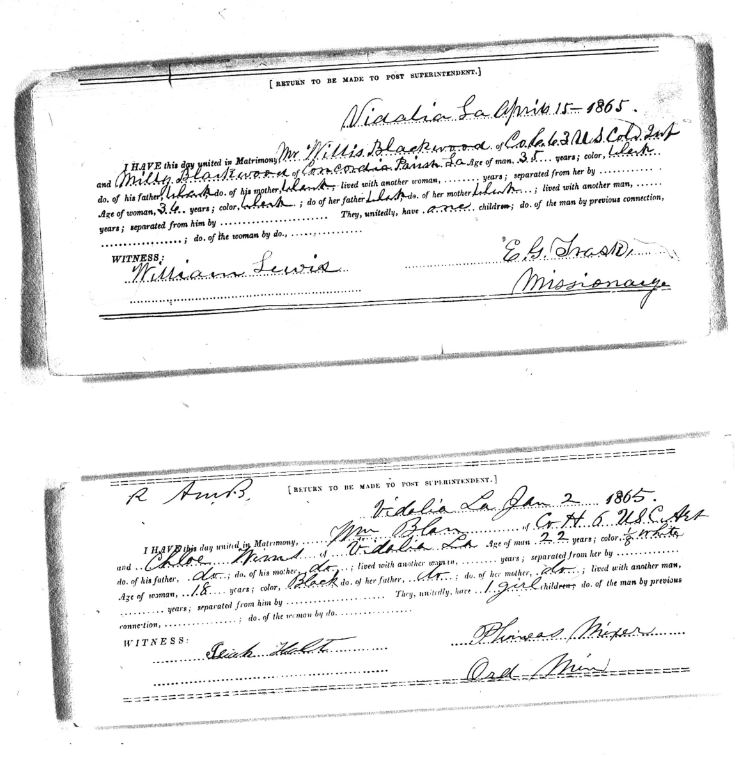 [RETURN TO BE MADE TO POST SUPERINTENDENT.]
Vidalia La April 15 - 1865.
I HAVE this day united in Matrimony Mr Willis Blackwood of Co. 63 U S Cold Inf
and Milly Blackwood of Concordia Parish La Age of man, 35 years; color, black
do. of his father, black do. of his mother, black, lived with another woman, years; separated from her by
Age of woman, 34 years; color, black; do of her father black do. of her mother black; lived with another man,
years; separated from him by They, unitedly, have one children; do. of the man by previous connection,
; do. of the woman by do.,
WITNESS:
William Lewis
E. G. Trask,
Missionary
R
[RETURN TO BE MADE TO POST SUPERINTENDENT.]
Vidalia La Jan 2 1865.
I HAVE this day united in Matrimony, Wm Blan of Co H 6 U S C Art
and Chloe of Vidalia La Age of man 22 years; color, white
do. of his father, do; do. of his mother do; lived with another woman, years; separated from her by
Age of woman, 18 years; color, Black do. of her father, do; do. of her mother, do; lived with another man,
years; separated from him by They, unitedly, have 1 girl children; do. of the man by previous
connection, ; do. of the woman by do.
WITNESS:
Holt
Phineas Mixer
Ord Min